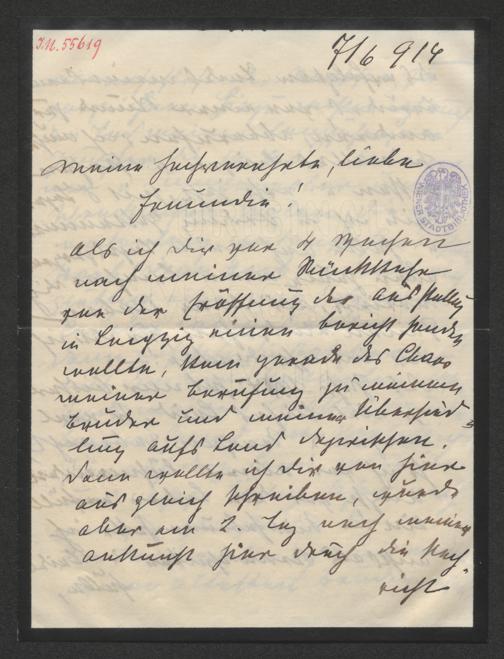 J.N. 55619
7/6 914
WIENER STADTBIBLIOTHEK
Meine hochverehrte, liebe
Freundin!
Als ich Dir vor 4 Wochen
nach meiner Rückkehr
von der Eröffnung der Ausstellung
in Leipzig einen Bericht senden
wollte, kam gerade das Chaos
meiner Berufung zu meinem
Bruder und meiner Übersied-
lung aufs Land dazwischen.
Dann wollte ich Dir von hier
aus gleich schreiben, wurde
aber am 2. Tag nach meiner
Ankunft hier durch die Nach-
richt